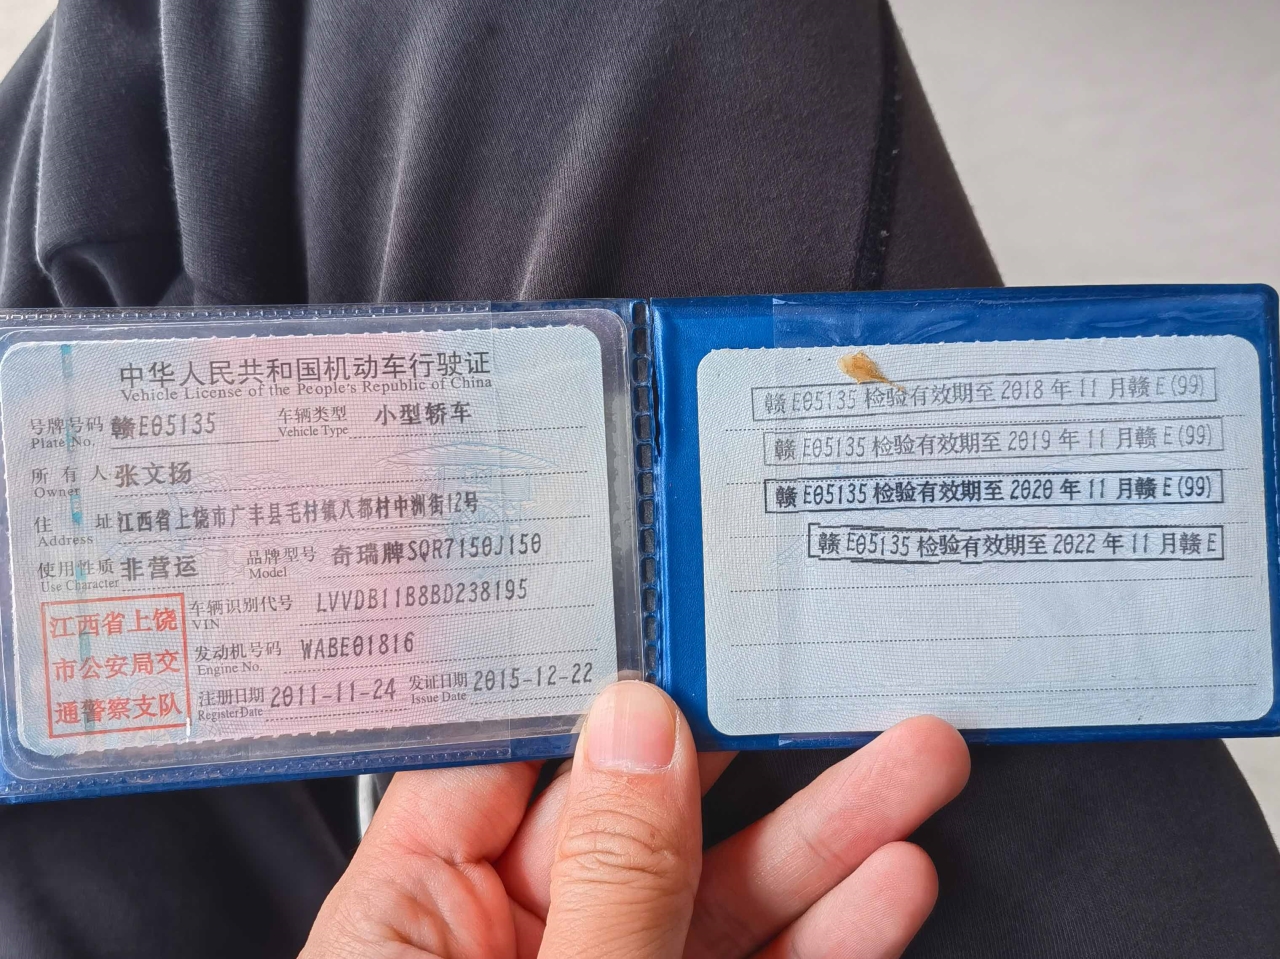 中华人民共和国机动车行驶证
Vehicle License of the People's Republic of China
号牌号码 赣E05135 车辆类型 小型轿车
Plate No. Vehicle Type
所有人 张文扬
Owner
住址 江西省上饶市广丰县毛村镇八都村中洲街12号
Address
使用性质 非营运 品牌型号 奇瑞牌SQR7150J150
Use Character Model
车辆识别代号 LVVDB11B8BD238195
VIN
发动机号码 WABE01816
Engine No.
注册日期 2011-11-24 发证日期 2015-12-22
Register Date Issue Date
江西省上饶
市公安局交
通警察支队
赣E05135检验有效期至2018年11月赣E(99)
赣E05135检验有效期至2019年11月赣E(99)
赣E05135检验有效期至2020年11月赣E(99)
赣E05135检验有效期至2022年11月赣E